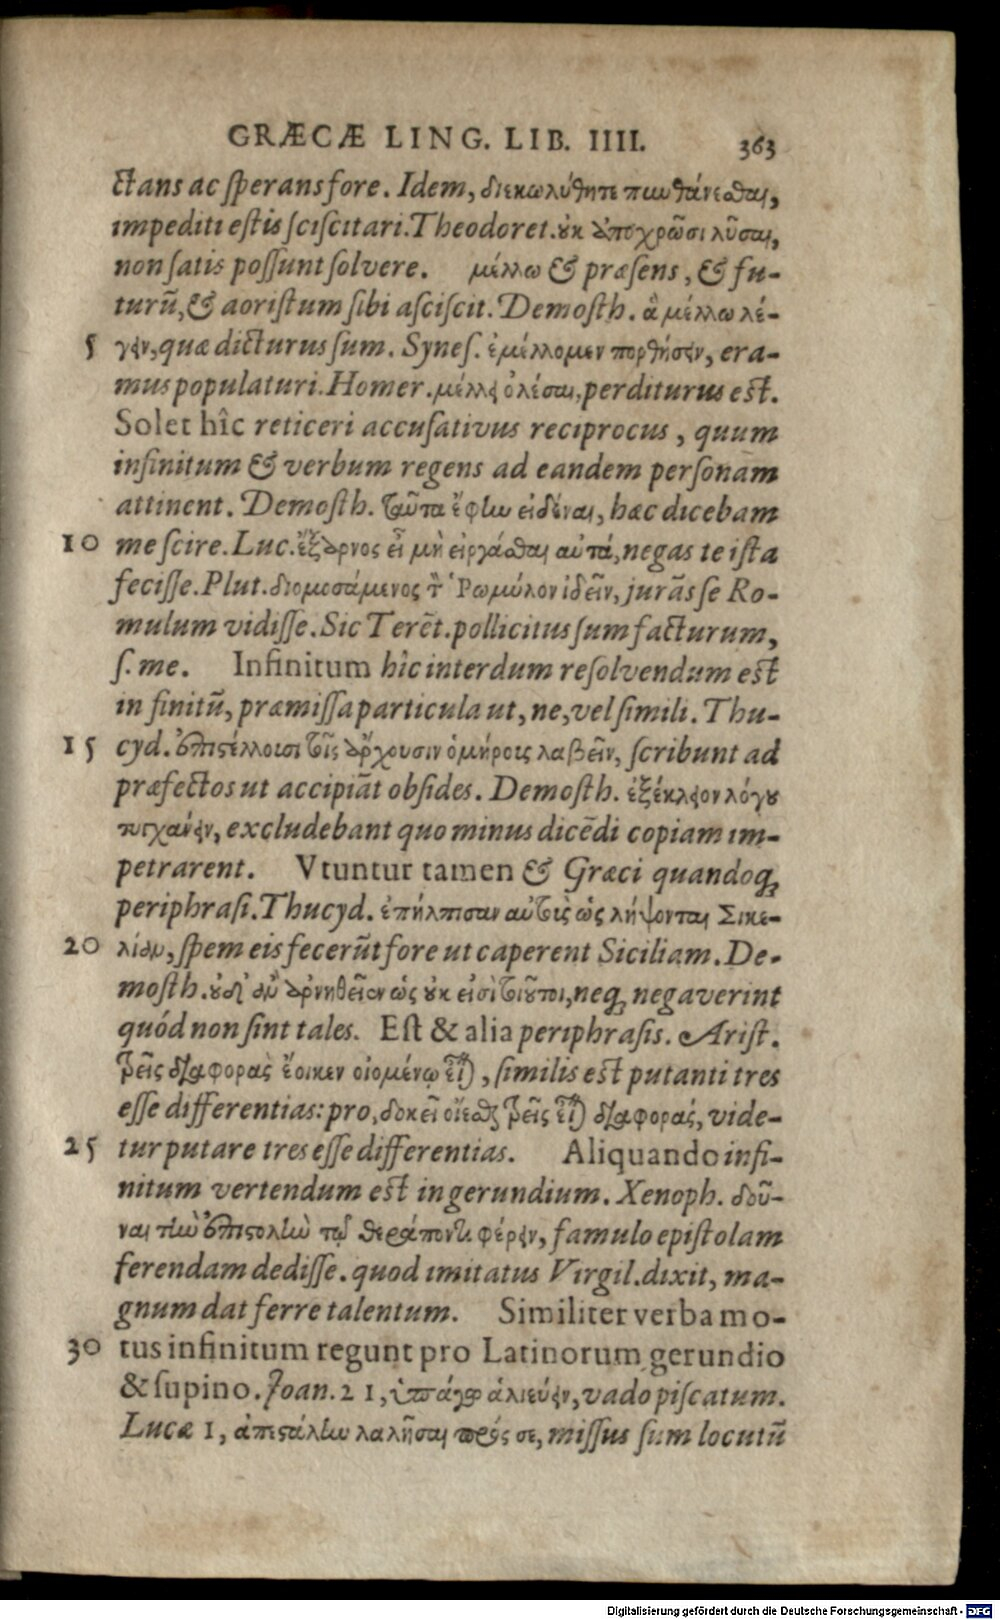 GRÆCÆ LING. LIB. IIII. 363
ctans ac sperans fore. Idem, διεκωλύθητε πυνθάνεσθαι,
impediti estis sciscitari. Theodoret. οὐκ ἀποχρῶσι λῦσαι,
non satis possunt solvere. μέλλω & præsens, & fu-
turū, & aoristum sibi asciscit. Demosth. ἃ μέλλω λέ-
5 γειν, quæ dicturus sum. Synes. ἐμέλλομεν πορθήσειν, era-
mus populaturi. Homer. μέλλει ὀλέσαι, perditurus est.
Solet hîc reticeri accusativus reciprocus, quum
infinitum & verbum regens ad eandem personam
attinent. Demosth. ταῦτα ἔφην εἰδέναι, hæc dicebam
10 me scire. Luc. ἔξαρνος εἶ μὴ εἰργάσθαι αὐτά, negas te ista
fecisse. Plut. διομοσάμενος τ̀ Ῥωμύλον ἰδεῖν, jurās se Ro-
mulum vidisse. Sic Terēt. pollicitus sum facturum,
s. me. Infinitum hîc interdum resolvendum est
in finitū, præmissa particula ut, ne, vel simili. Thu-
15 cyd. ἐπιστέλλουσι τοῖς ἄρχουσιν ὁμήροις λαβεῖν, scribunt ad
præfectos ut accipiāt obsides. Demosth. ἐξέκλειον λόγου
τυγχάνειν, excludebant quo minus dicēdi copiam im-
petrarent. Vtuntur tamen & Græci quandoq;
periphrasi. Thucyd. ἐπήλπισαν αὐτοὺς ὡς λήψονται Σικε-
20 λίαν, spem eis fecerūt fore ut caperent Siciliam. De-
mosth. οὐδ' ἂν ἀρνηθεῖεν ὡς οὐκ εἰσὶ τοιοῦτοι, neq; negaverint
quód non sint tales. Est & alia periphrasis. Arist.
τρεῖς διαφορὰς ἔοικεν οἰομένῳ εἶναι, similis est putanti tres
esse differentias: pro, δοκεῖ οἴεσθαι τρεῖς εἶναι διαφοράς, vide-
25 tur putare tres esse differentias. Aliquando infi-
nitum vertendum est in gerundium. Xenoph. δοῦ-
ναι τὴν ἐπιστολὴν τῷ θεράποντι φέρειν, famulo epistolam
ferendam dedisse. quod imitatus Virgil. dixit, ma-
gnum dat ferre talentum. Similiter verba mo-
30 tus infinitum regunt pro Latinorum gerundio
& supino. Joan. 21, ὑπάγω ἁλιεύειν, vado piscatum.
Lucæ 1, ἀπεστάλην λαλῆσαι πρός σε, missus sum locutū
Digitalisierung gefördert durch die Deutsche Forschungsgemeinschaft - DFG